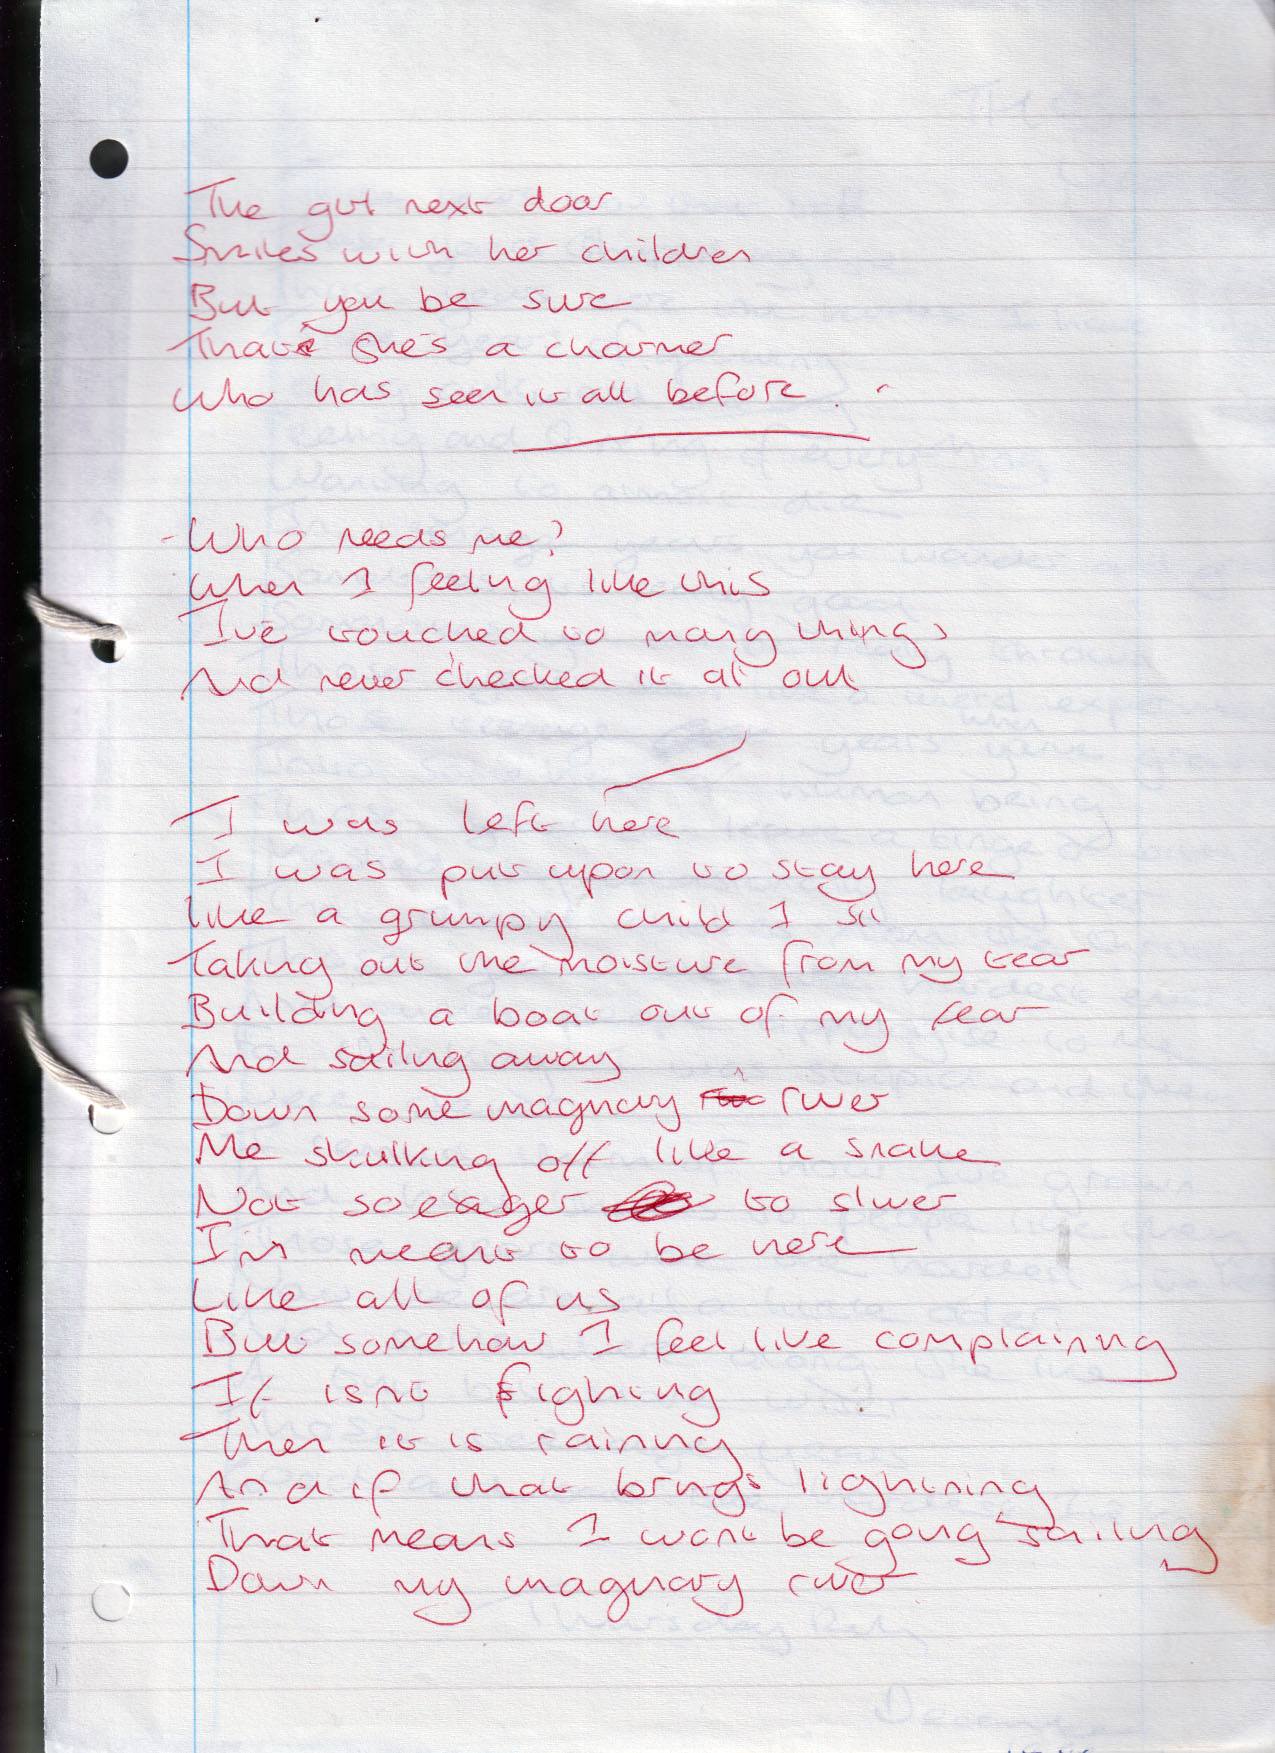 The girl next door
Smiles with her children
But you be sure
That she's a charmer
Who has seen it all before.
- Who needs me?
When I feeling like this
I've touched so many things
And never checked it all out
I was left here
I was put upon to stay here
Like a grumpy child I sit
Taking out the moisture from my tear
Building a boat out of my fear
And sailing away
Down some imaginary river
Me skulking off like a snake
Not so eager to sliver
I'm meant to be here
Like all of us
But somehow I feel like complaining
If isnt fighing
Then it is raining
And if that brings lightning
That means I wont be going sailing
Down my imaginary river